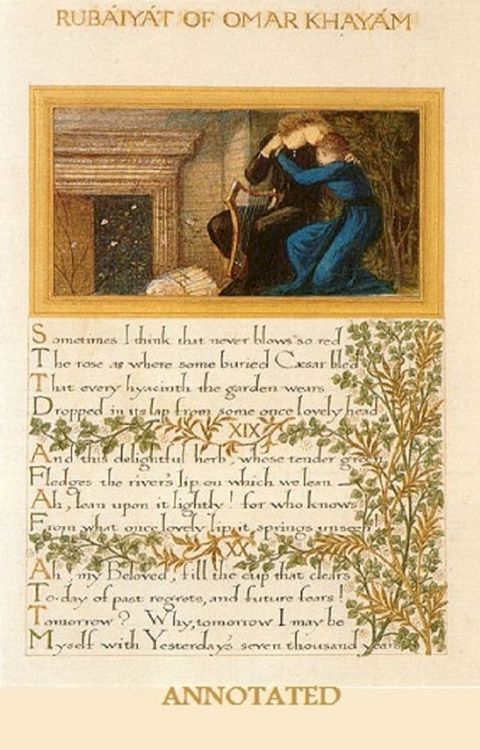 RUBÁIYÁT OF OMAR KHAYÁM
Sometimes I think that never blows so red
The rose as where some buried Cæsar bled
That every hyacinth the garden wears
Dropped in its lap from some once lovely head
XIX
And this delightful herb, whose tender green
Fledges the river's lip on which we lean —
Ah, lean upon it lightly! for who knows
From what once lovely lip it springs unseen!
XX
Ah, my Beloved, fill the cup that clears
To-day of past regrets, and future fears!
Tomorrow? Why, tomorrow I may be
Myself with Yesterday's seven thousand years
ANNOTATED